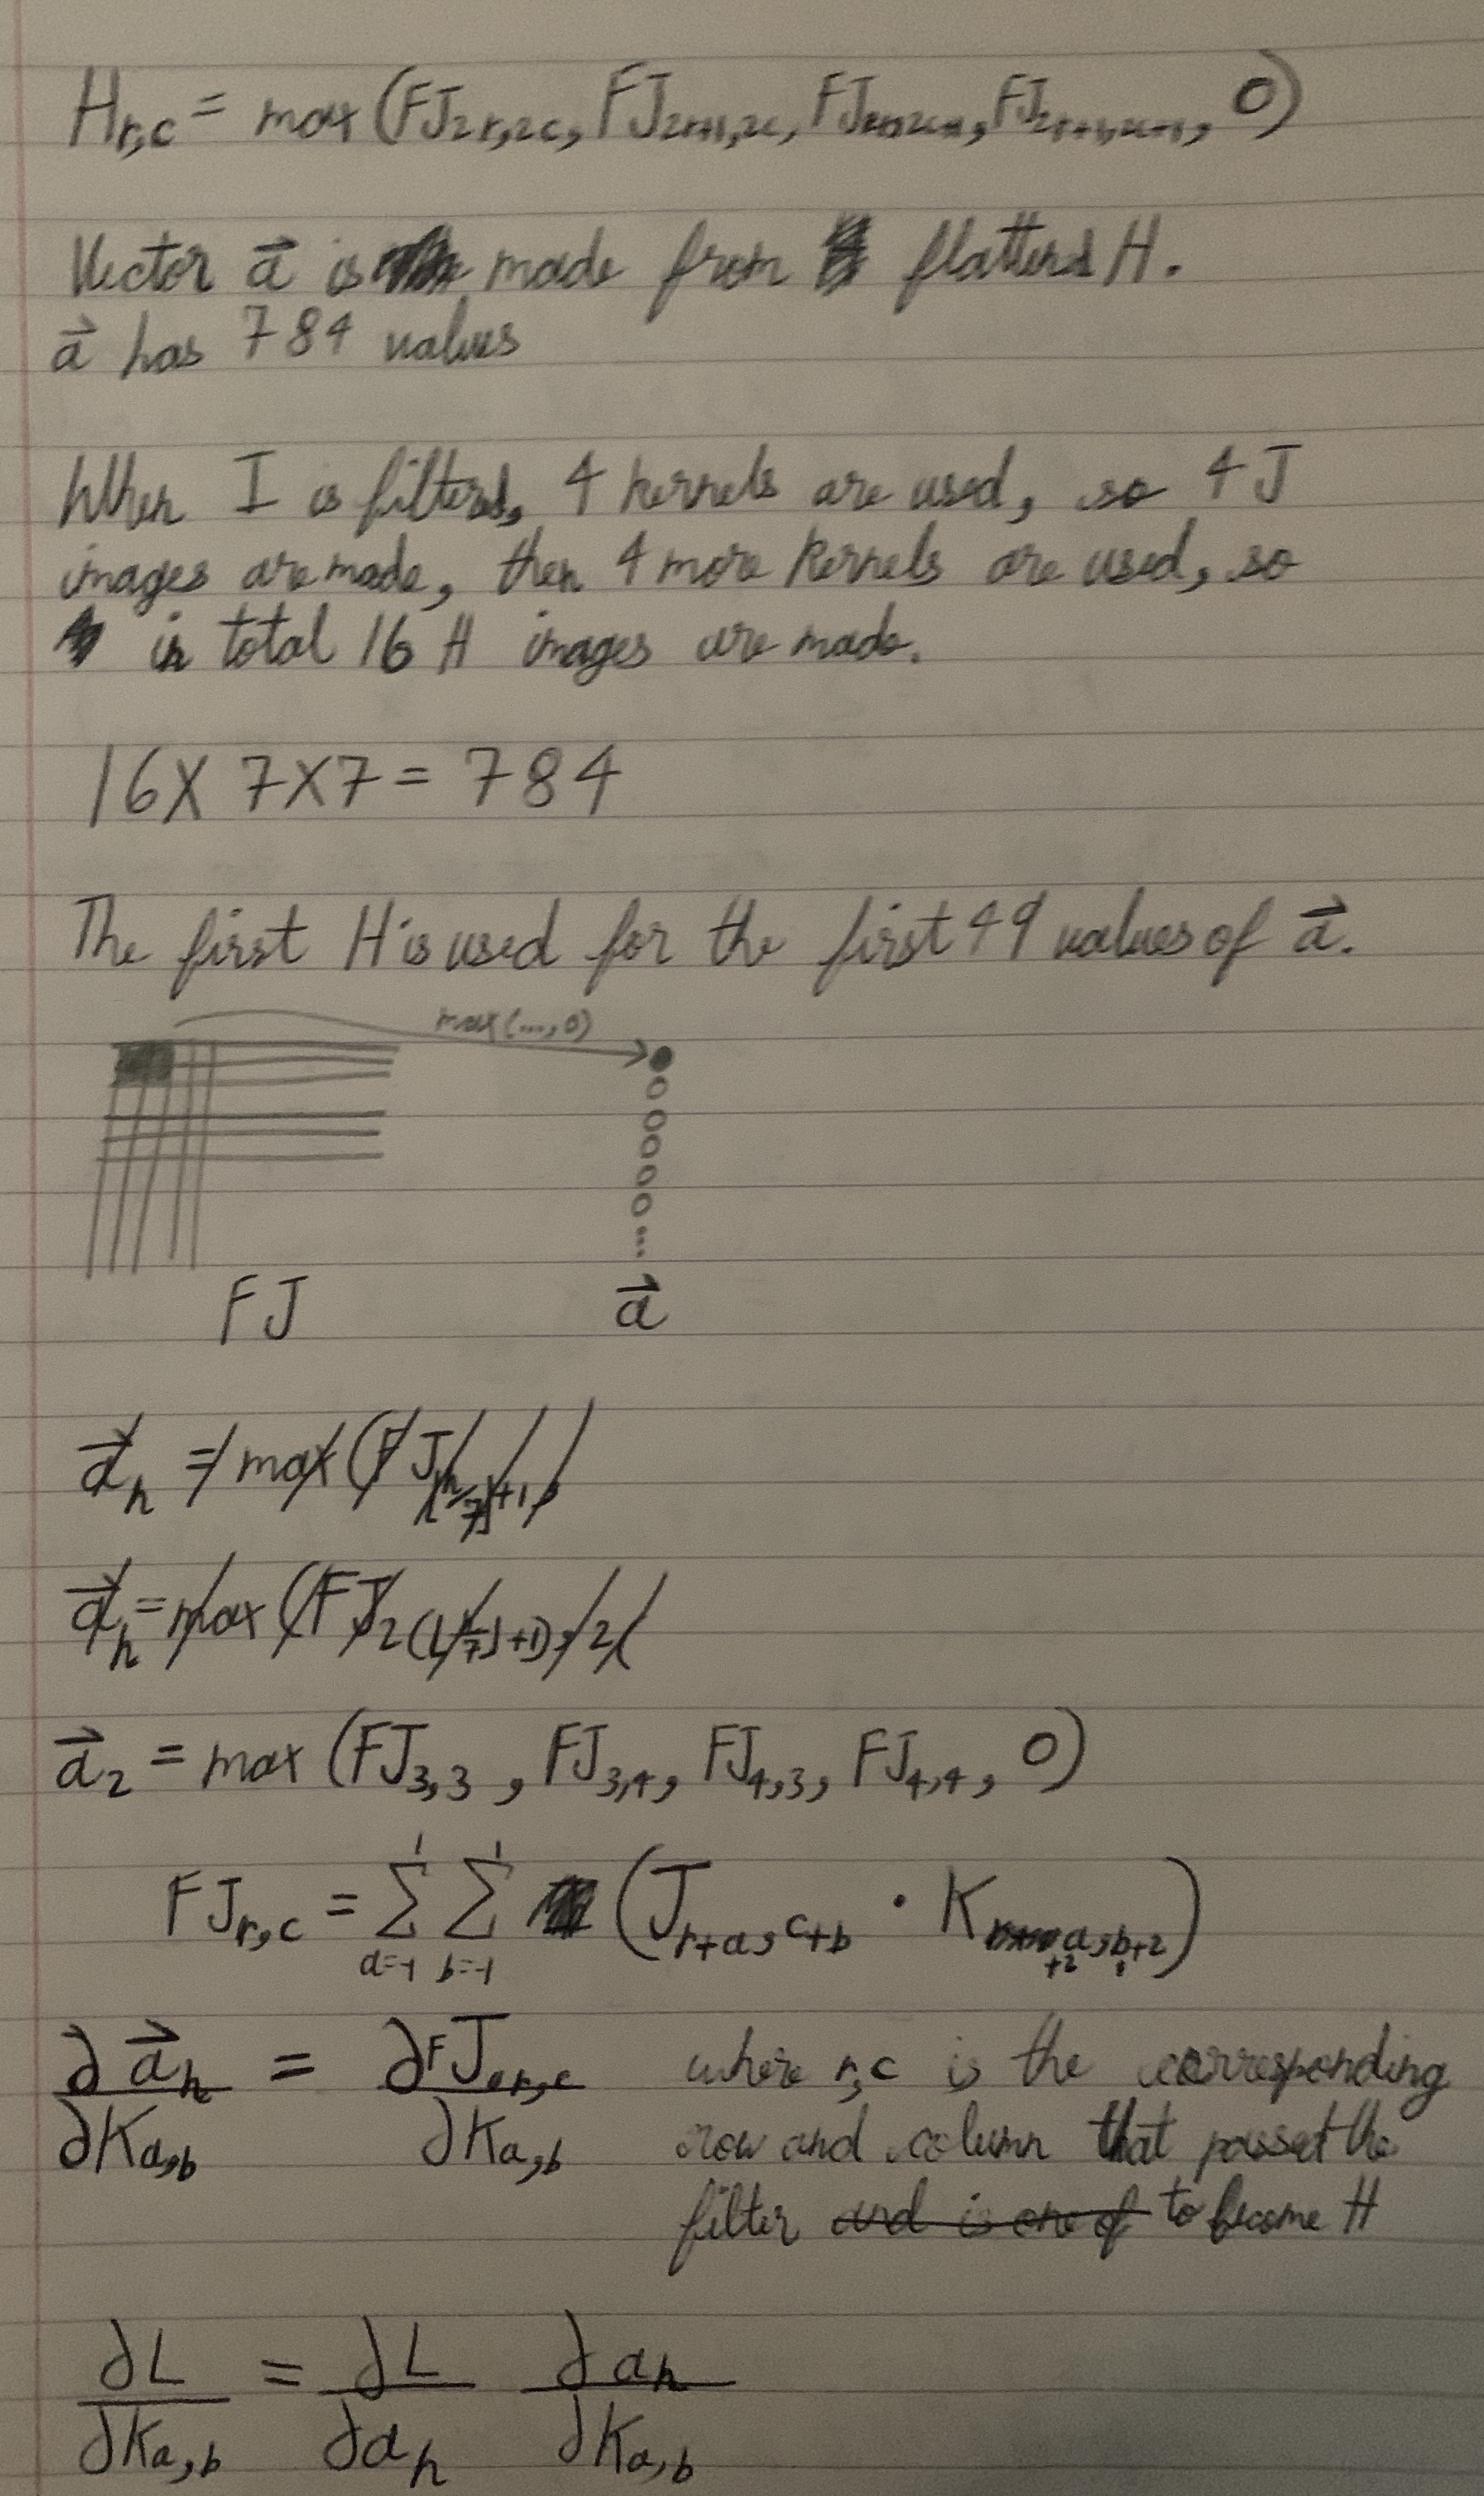 H_{r,c} = max(FJ_{2r,2c}, FJ_{2r+1,2c}, FJ, FJ_{2r+1,2c+1}, 0)
Vector a⃗ is made from flatttend H.
a⃗ has 784 values
When I is filterd, 4 kernels are used, so 4 J
images are made, then 4 more kernels are used, so
in total 16 H images are made.
16 X 7 X 7 = 784
The first H is used for the first 49 values of a⃗.
max(...,0)
FJ
a⃗
a⃗_n = max(FJ_{⌊n/7⌋+1,
a⃗_n = max(FJ_{2(⌊n/7⌋+1), 2(
a⃗_2 = max(FJ_{3,3}, FJ_{3,4}, FJ_{4,3}, FJ_{4,4}, 0)
FJ_{r,c} = ∑_{a=-1}^{1} ∑_{b=-1}^{1} (J_{r+a,c+b} · K_{a+2,b+2})
∂a⃗_n/∂K_{a,b} = ∂FJ_{r,c}/∂K_{a,b} where r,c is the corresponding
row and column that passed the
filter and is one of to become H
∂L/∂K_{a,b} = ∂L/∂a_n ∂a_n/∂K_{a,b}